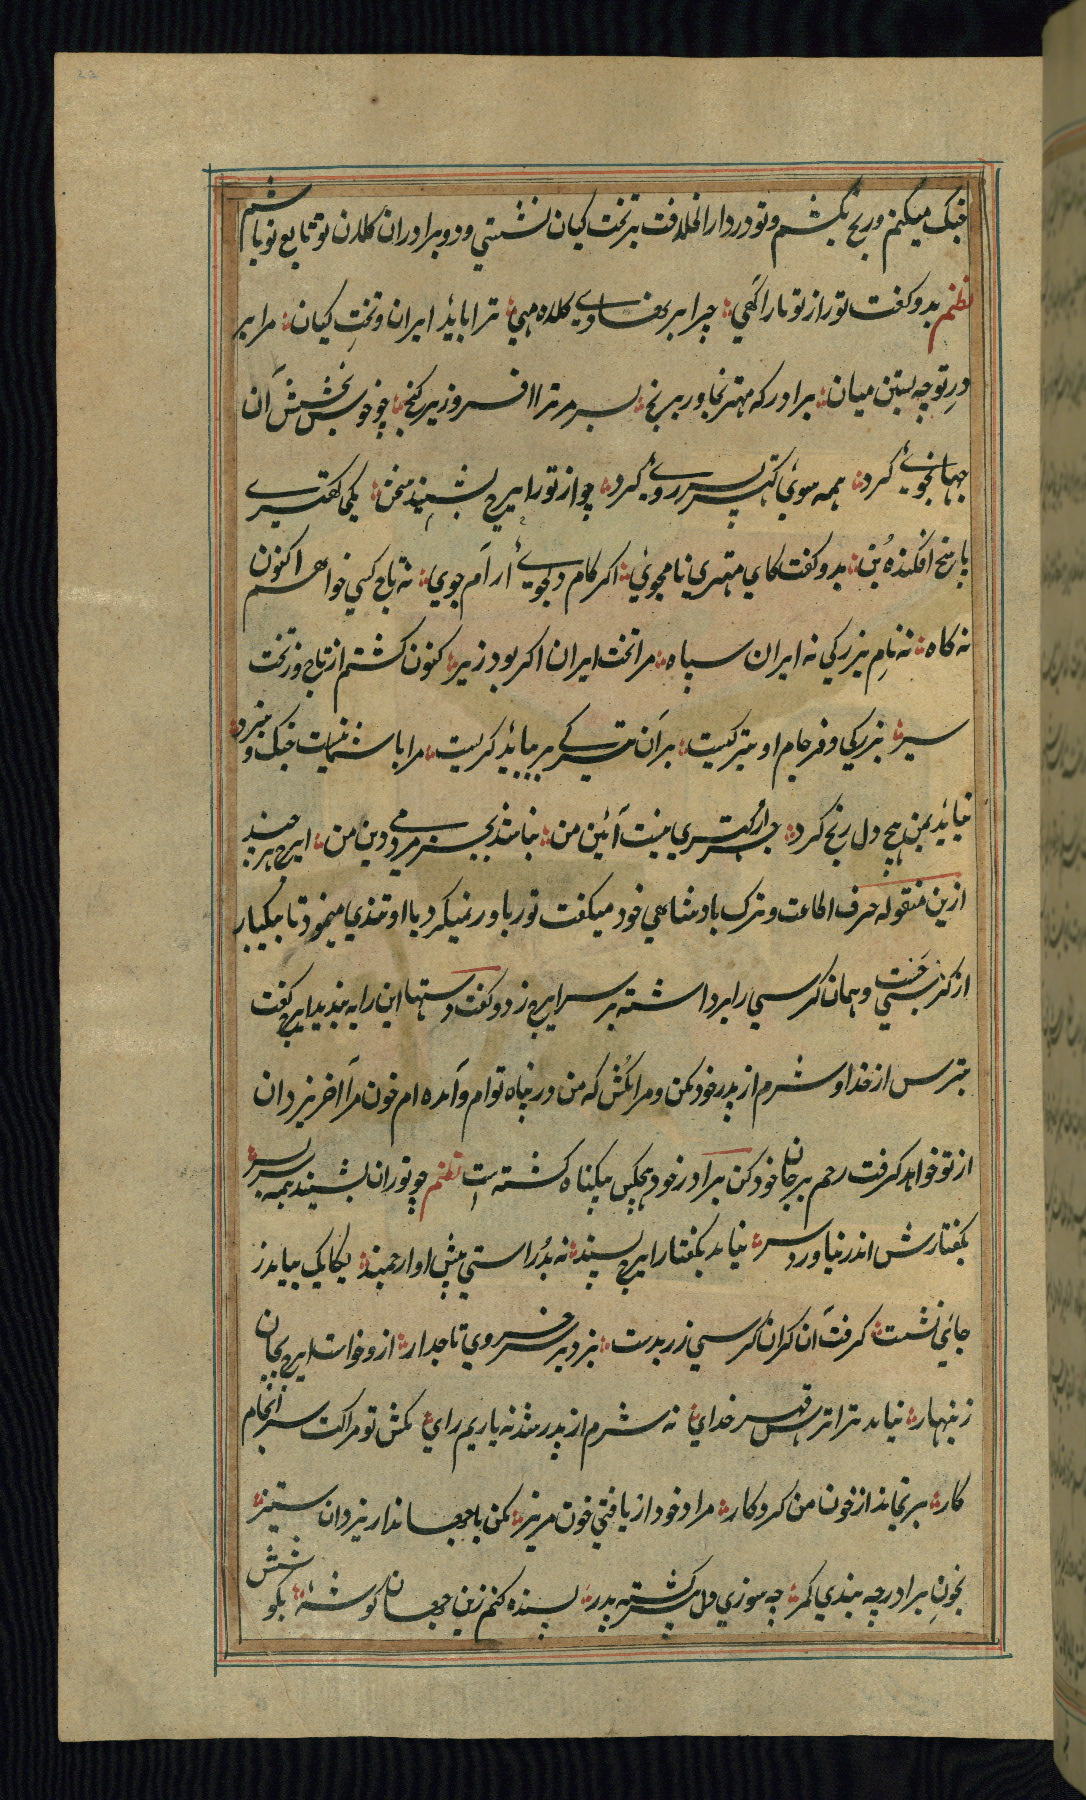 جنگ میکنم و رنج بکشم و تو در دار الخلافت بر تخت کیان نشستی و دو برادران کلان تو تابع تو باشیم
نظم بدو گفت تور از تو ما را گهی چرا بر نهادی کلاه مهی ترا باید ایران و تخت کیان مرا بر
در تو چه بستن میان برادر که مهتر بخاور برنج بسر مر ترا افسر و زیر گنج چو بخشش آن
جهانجوی کرد همه سوی کهتر پسر روی کرد چو از تور ایرج بشنید سخن یکی
پاسخ افگنده بن بدو گفت کای مهتری نامجوی اگر کام دلجوی آرام جوی نه تاج کیی خواهم اکنون
نه گاه نه نام بزرگی نه ایران سپاه مرا تخت ایران اگر بود زیر کنون گشتم از تاج و ز تخت
سیر بزرگی و فرجام او بتریست بر آن بباید گریست مرا با شما نیست جنگ و نبرد
نباید بمن هیچ دل رنج کرد جز از کهتری نیست آئین من نباشد بجز مردمی دین من ایرج هر چند
ازین منقوله حرف اطاعت و ترک بادشاهی خود میگفت تور باور نمیکرد با او تندی مینمود تا بیکبار
از کرسی جست و همان کرسی را برداشته بر سر ایرج زد و گفت دستهای این را به بندید ایرج گفت
بترس از خدا و شرم از پدر خود بکن و مرا مکش که من در پناه تو ام و آمده ام خون مرا آخر یزدان
از تو خواهد گرفت رحم بر جان خود کن برادر خود هیچکس بیگناه کشته است نظم چو تور آن بشنید همه بسر
بگفتارش اندر نیاورد سر نیامد بگفتار ایرج پسند نه بد راستی پیش او ارجمند یکایک بیامد ز
جائی نشست گرفت آن گران کرسی زر بدست بزد بر سر خسروی تاجدار ازو خواست ایرج بجان
زینهار نیاید ترا ترس قهر خدای نه شرم از پدر شد نه یاریم رای مکش تو مرا کت سر انجام
کار برنجاند از خون من کردگار مرا خود از یافتی خون مریز مکن با جهاندار یزدان ستیز
بخون برادر چه بندی کمر چه سوزی دل پیر گشته پدر پسنده کنم زین جهان گوشهٔ بکوشش